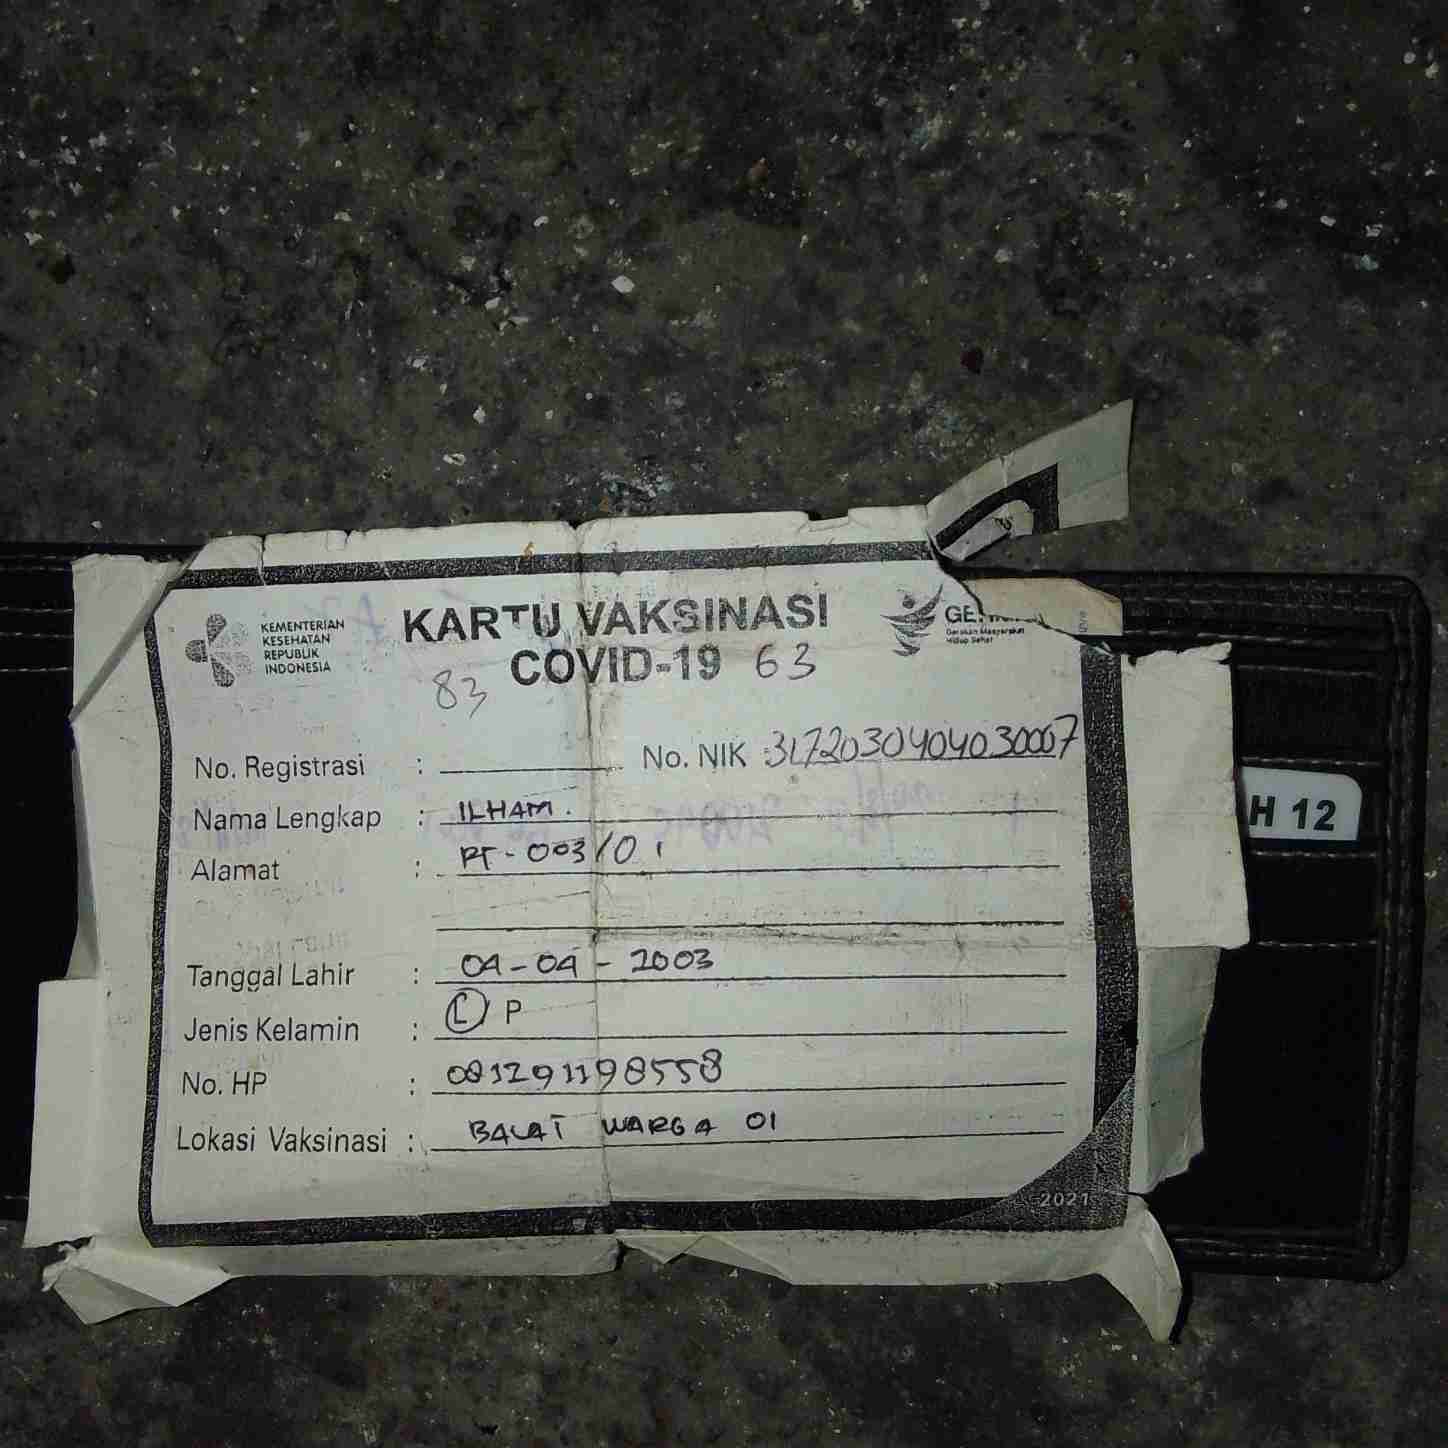 KEMENTERIAN
KESEHATAN
REPUBLIK
INDONESIA
KARTU VAKSINASI
COVID-19
Gerakan Masyarakat
Hidup Sehat
83
63
No. Registrasi :
No. NIK : 3172030404030007
Nama Lengkap : ILHAM.
Alamat : RT-003/01
Tanggal Lahir : 04-04-2003
Jenis Kelamin : L/P
No. HP : 081291198558
Lokasi Vaksinasi : BALAI WARGA 01
2021
H 12